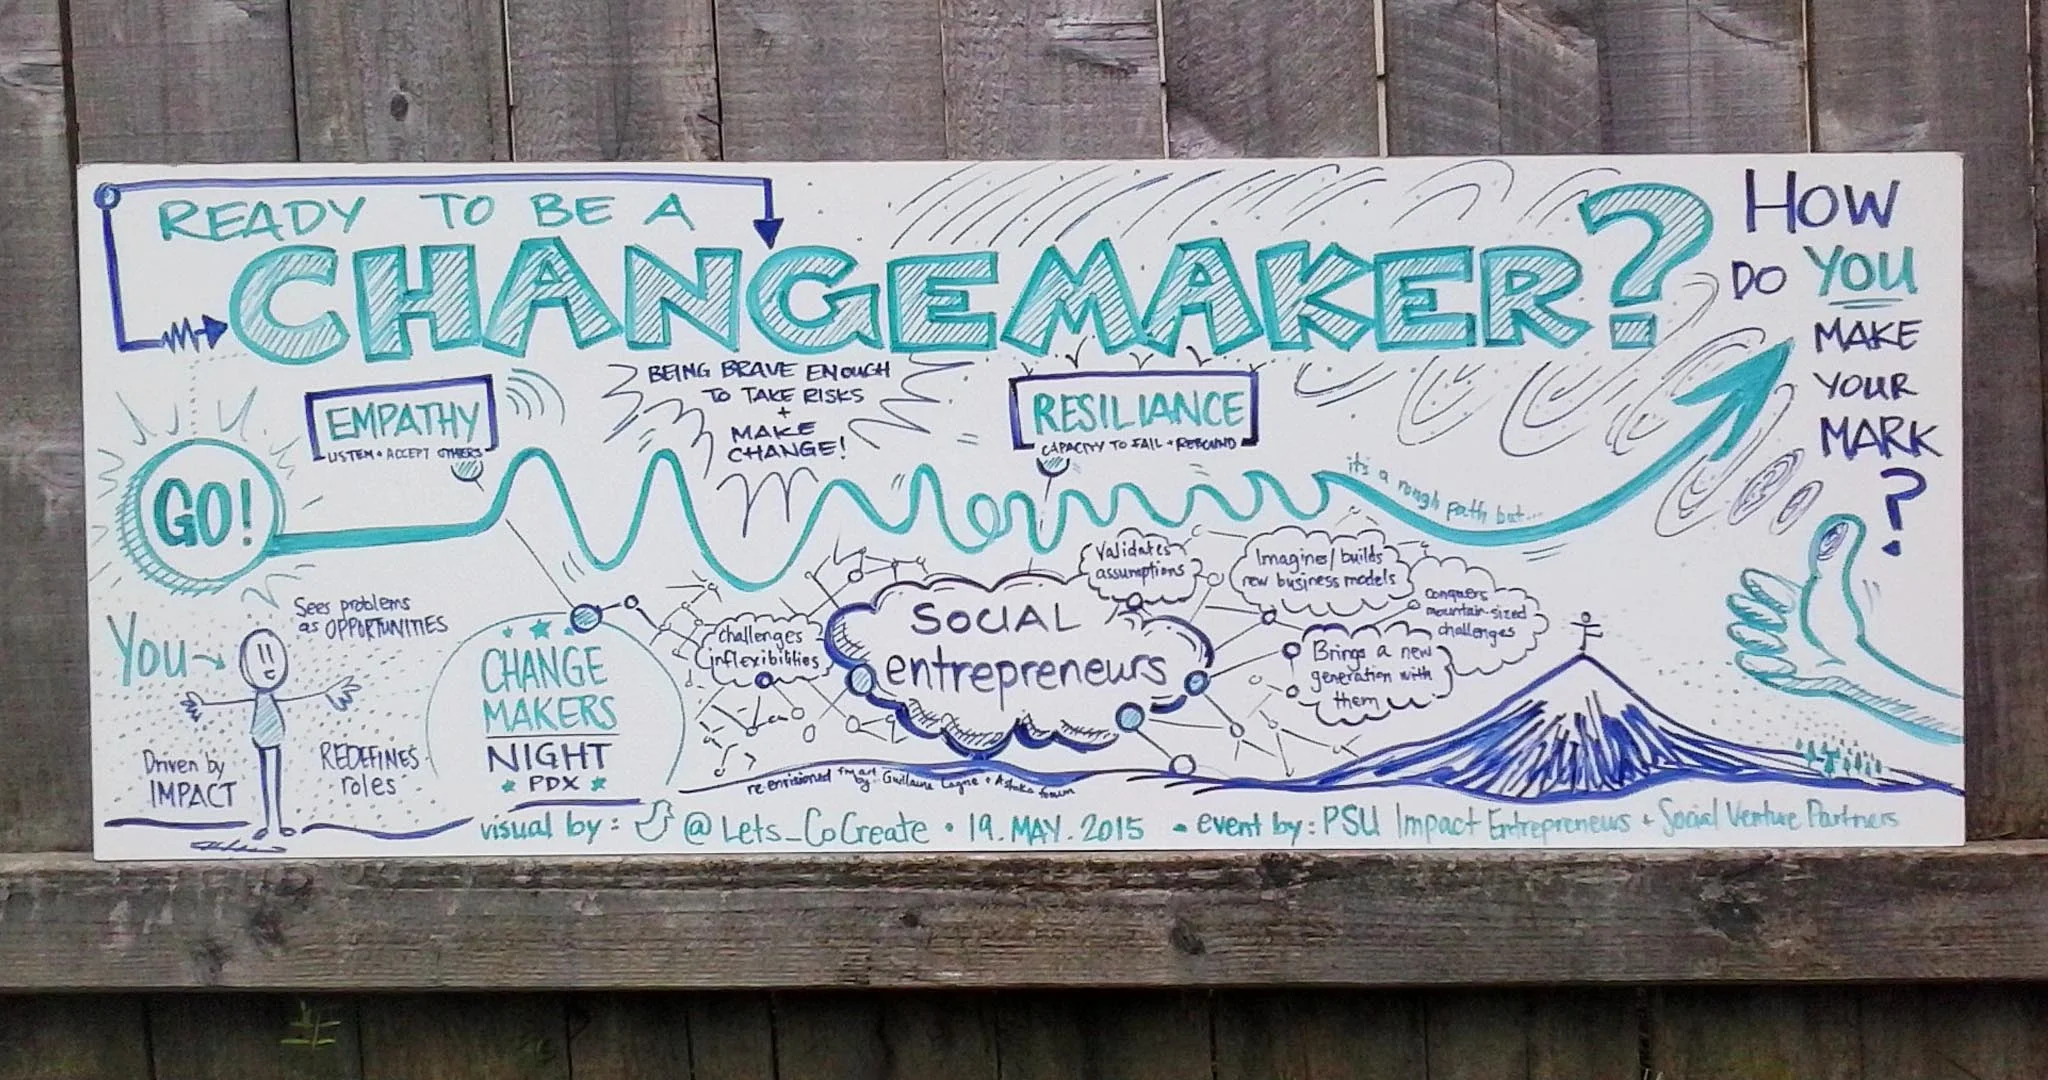 READY TO BE A
CHANGEMAKER?
HOW
DO YOU
MAKE
YOUR
MARK
?
GO!
EMPATHY
LISTEN + ACCEPT OTHERS
BEING BRAVE ENOUGH
TO TAKE RISKS
+
MAKE
CHANGE!
RESILIANCE
CAPACITY TO FAIL + REBOUND
it's a rough path but...
YOU
Sees problems
as OPPORTUNITIES
Driven by
IMPACT
REDEFINES
roles
CHANGE
MAKERS
NIGHT
PDX
challenges
inflexibilities
SOCIAL
entrepreneurs
Validates
assumptions
Imagines/builds
new business models
conquers
mountain-sized
challenges
Brings a new
generation with
them
re envisioned from art
by: Guillaume Lagne + Ashoka forum
visual by: @Lets_CoCreate • 19.MAY.2015 • event by: PSU Impact Entrepreneurs + Social Venture Partners